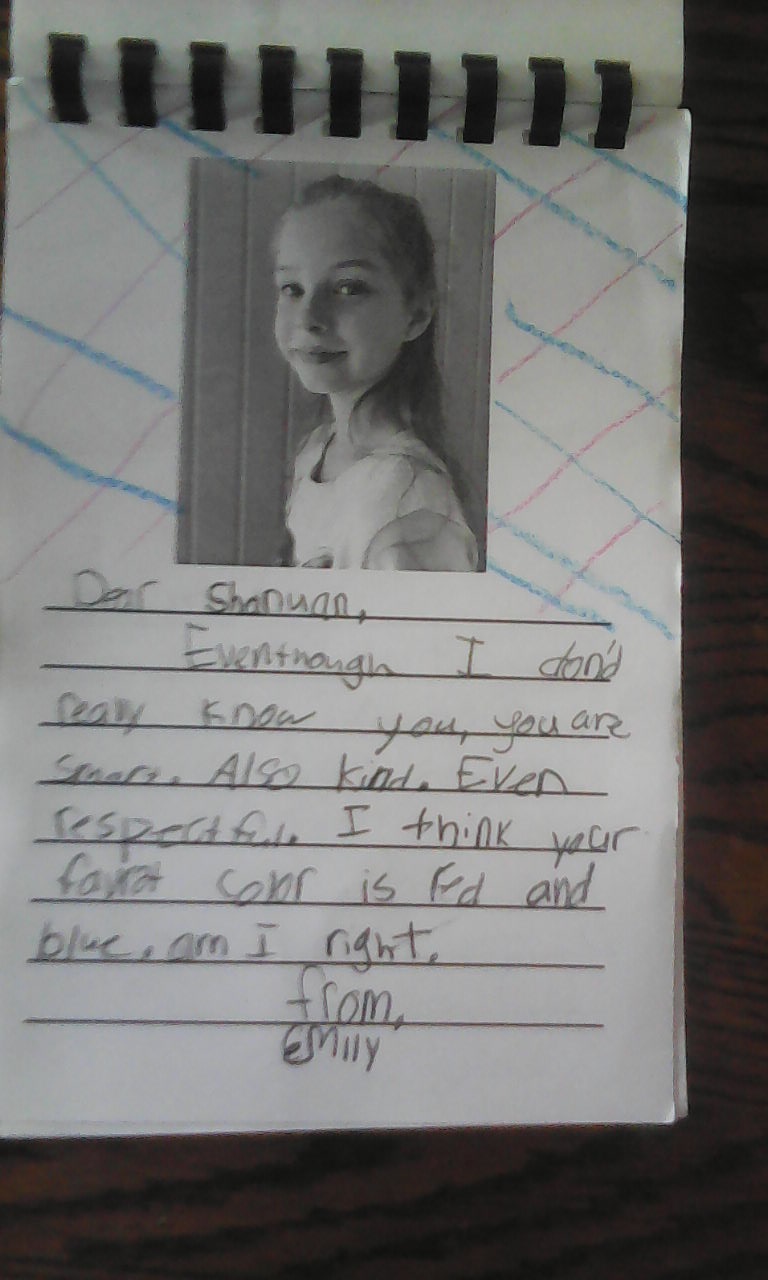 Dear Shanuan,
Eventhough I don'd
realy know you, you are
smart. Also kind. Even
respectful. I think your
favrot color is red and
blue, am I right.
from,
EMIlY